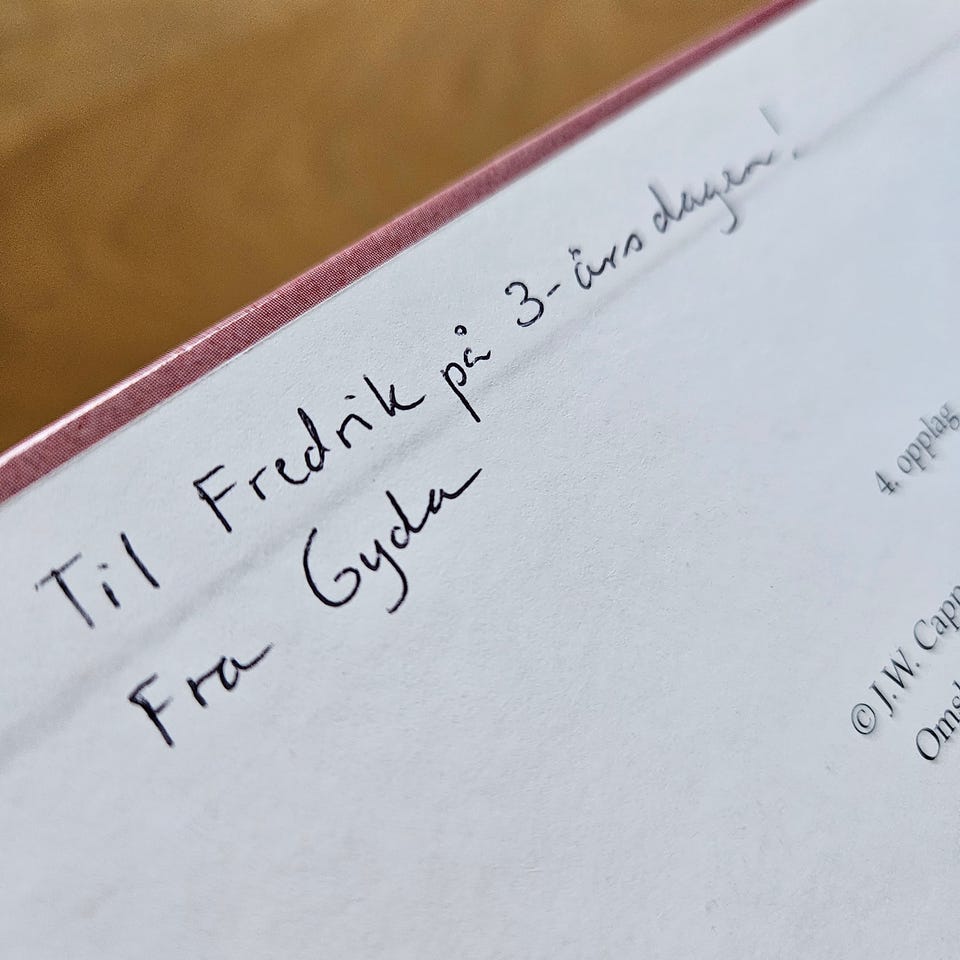 Til Fredrik på 3-årsdagen!
Fra Gyda
4. opplag
© J.W. Capp
Omsl